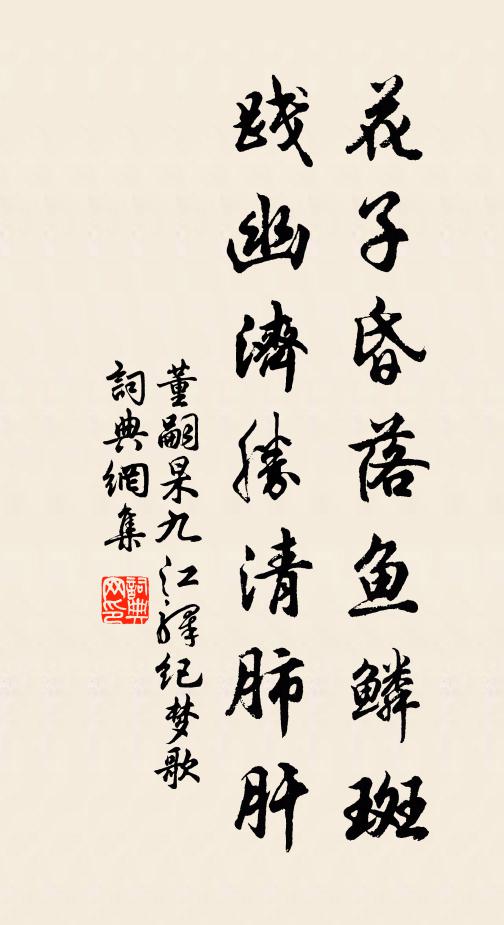 花子昏落鱼鳞斑
践幽济勝清肺肝
董嗣杲九江驛纪梦歌
詞典網集
詞典网印